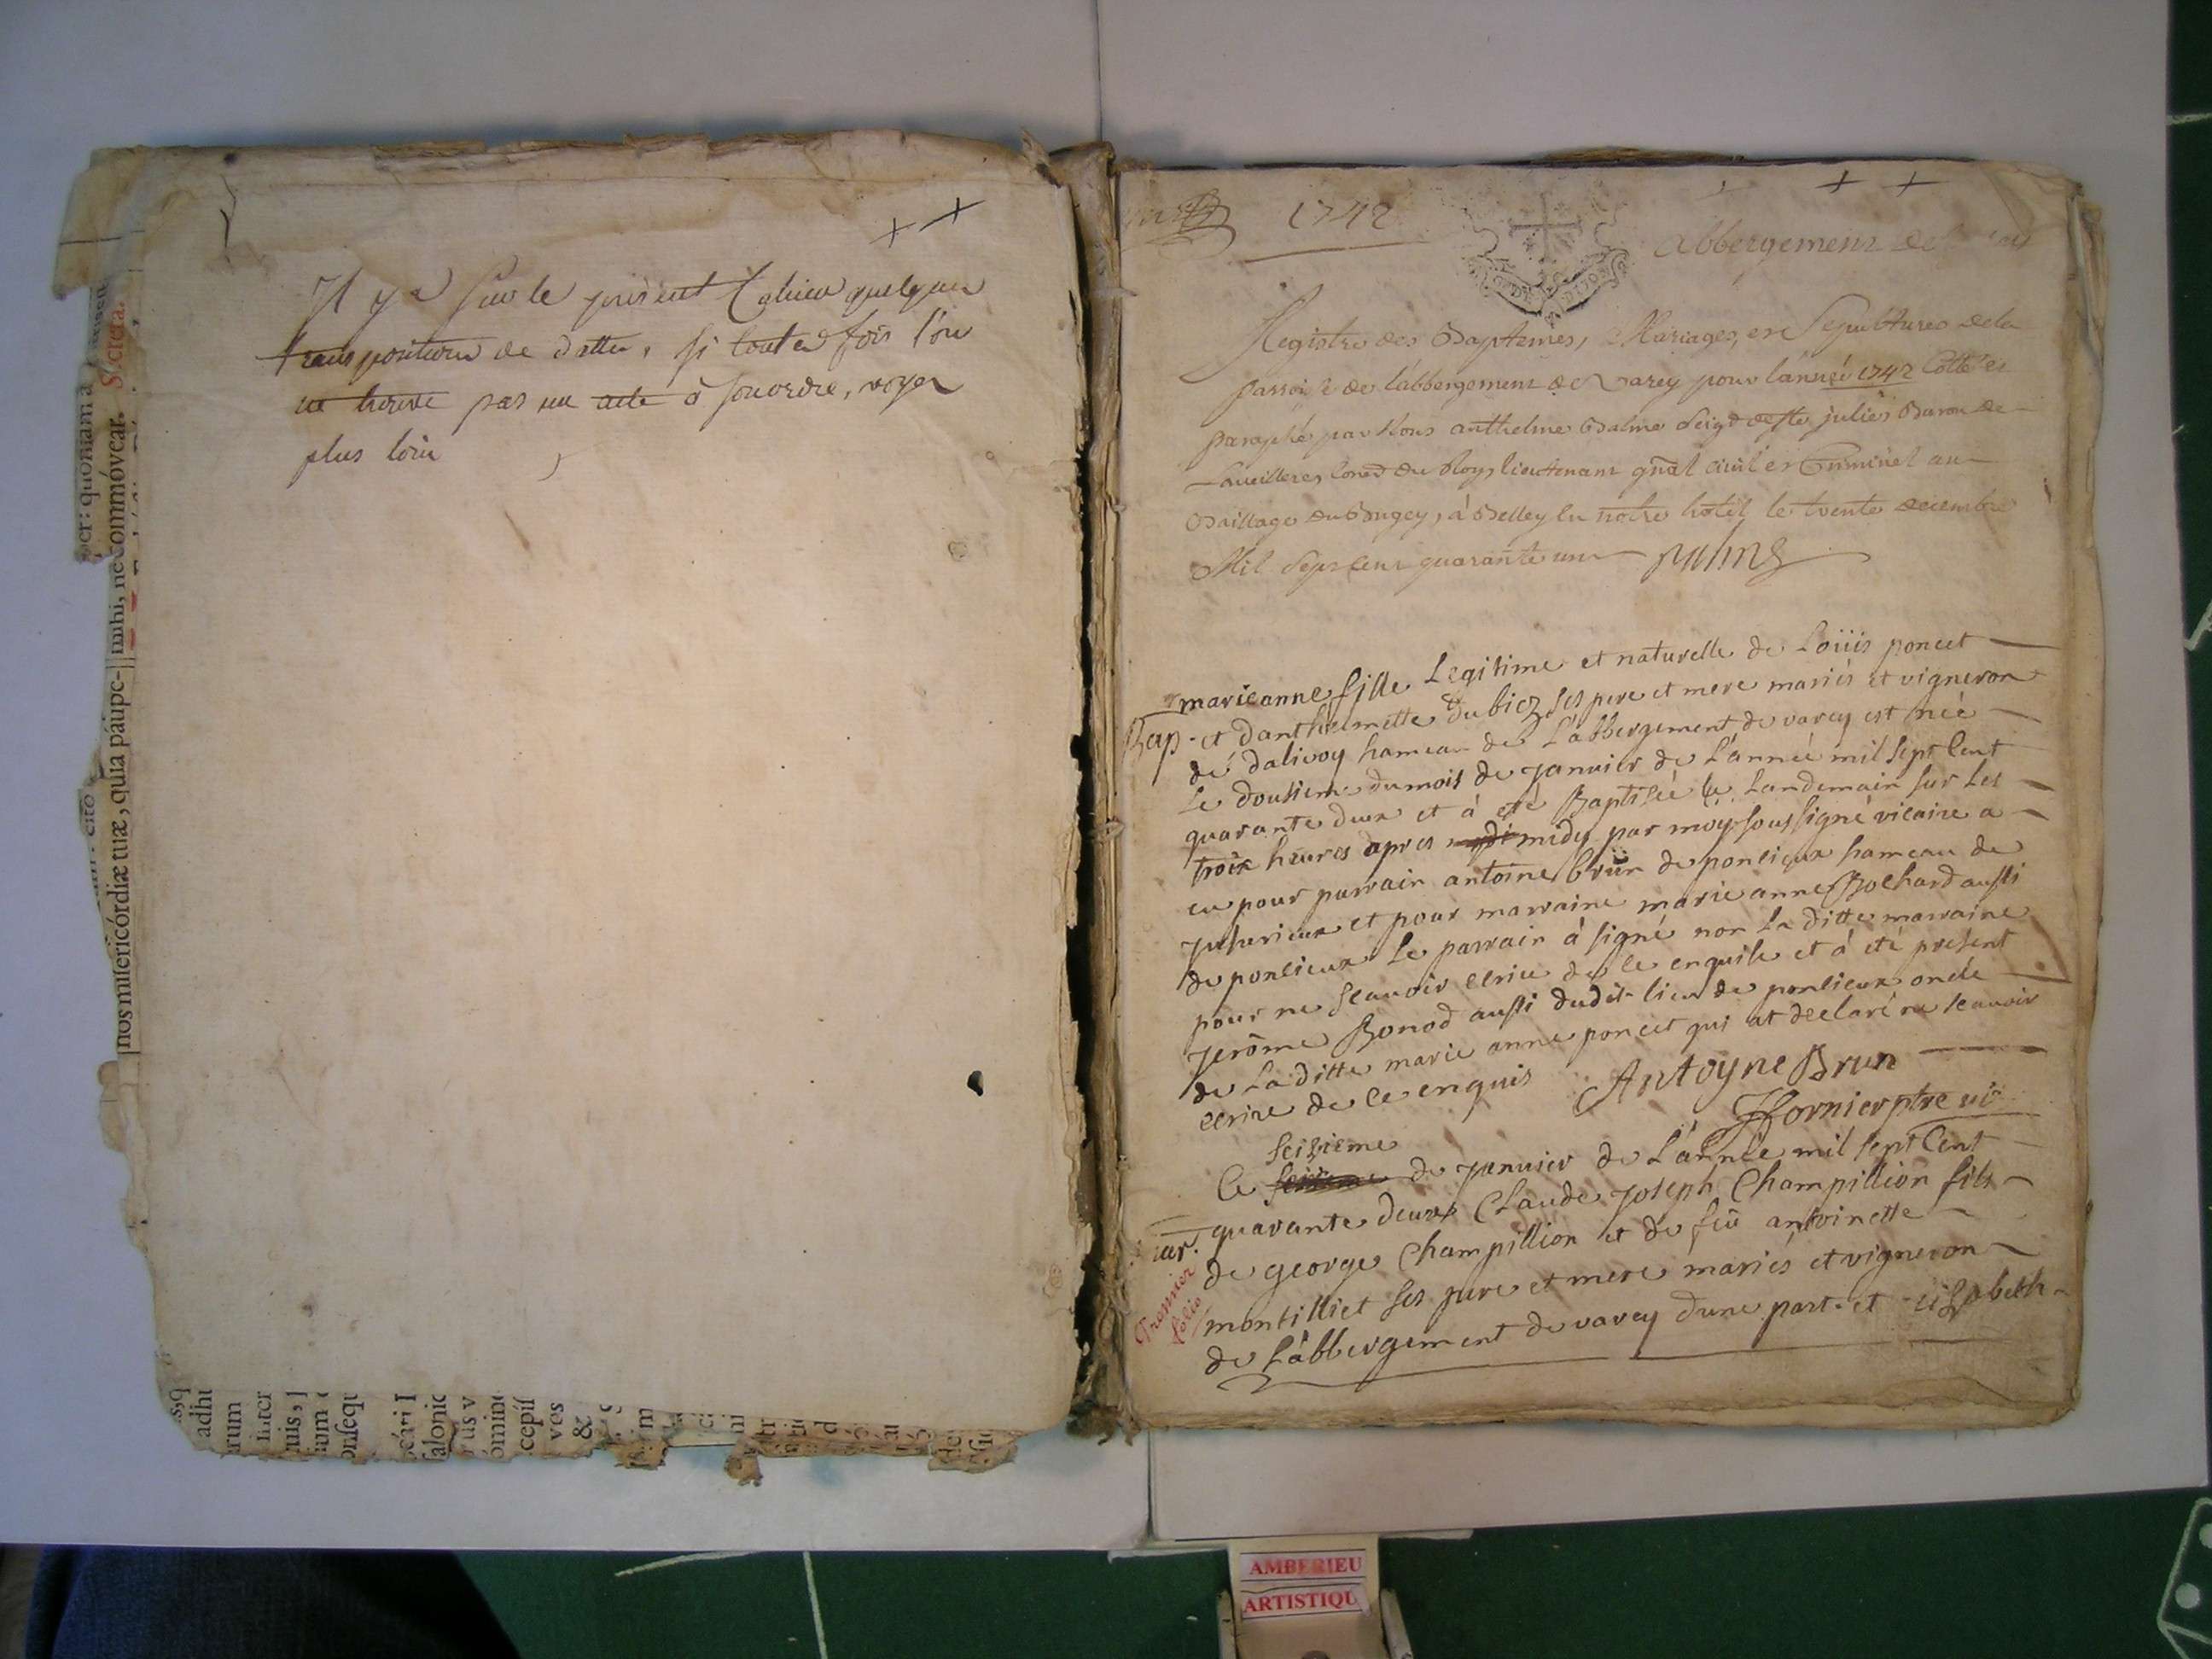 Il y a sur le present Cahier quelques
transpositions de dattes, si toutes fois l'on
ne trouve pas un acte à son ordre, voyez
plus loin
1742
abbergement de
Registre des Baptemes, Mariages, et Sepultures dela
parroisse de labbergement de Varey pour l'année 1742 Cotté et
paraphé par Nous anthelme Balme Seigr de Ste julies Baron de
Conser du Roy, lieutenant gñal civil et Criminel au
Baillage du Bugey, à Belley en notre hotel le trente decembre
Mil Sept Cent quarante un Balme
marie anne fille Legitime et naturelle de Loüis poncet
Bap. et danthelmette dubiez ses pere et mere mariés et vigneron
de dalivoy hameau de L'abbergement de varey est née
Le dousieme du mois de janvier de L'année mil sept Cent
quarante deux et à eté Baptisée le Landemain sur Les
trois heures apres midy par moy sous signé vicaire a
eu pour parrain antoine brün de poncieux hameau de
jujurieux et pour marraine marie anne Bochard aussi
de poncieux Le parrain à signé non La ditte marraine
pour ne scavoir ecrire de ce enquise et à eté present
jerôme Bonod aussi dudit lieu de poncieux oncle
de La ditte marie anne poncet qui at declaré ne scavoir
ecrire de ce enquis Antoyne Brun
Fornier ptre vic
seisieme
Ce de janvier de L'année mil sept Cent
quarante deux Claude joseph Champillion fils
de george Champillion et de feü antoinette
montilliet ses pere et mere mariés et vigneron
de L'abbergement de varey dune part et elizabeth
mar.
Premier
folio
per: quoniam a
nos misericórdiæ tuæ, quia páupe- mihi, ne commóvear. Secreta.
adhu
rum
AMBERIEU
ARTISTIQU